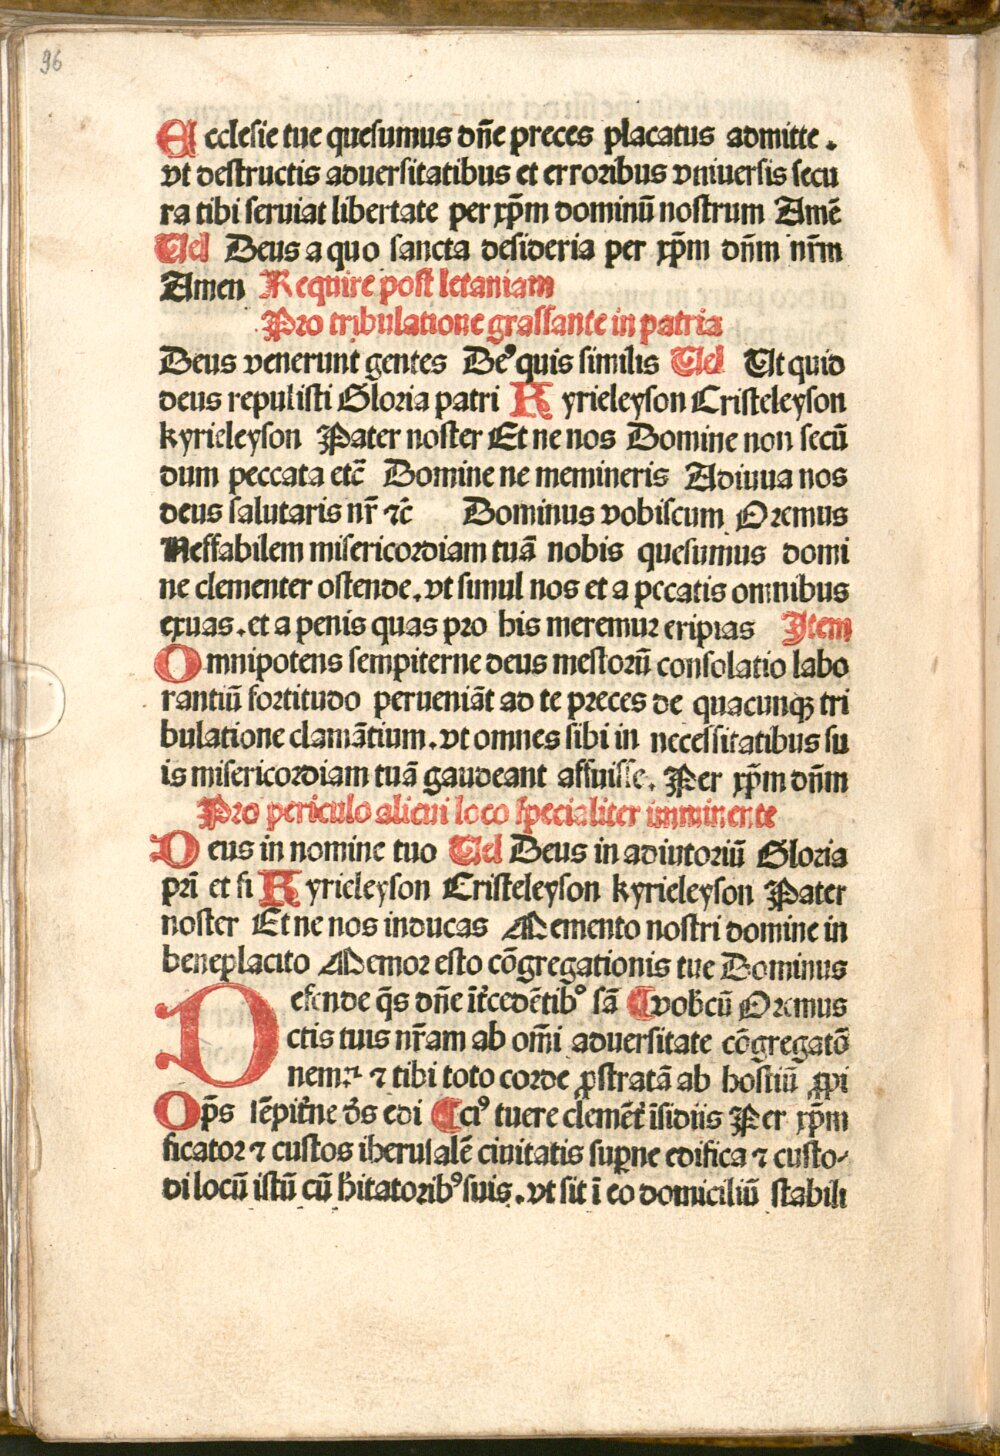 96
Ecclesie tue quesumus dn̄e preces placatus admitte.
vt destructis aduersitatibus et erroribus vniuersis secu
ra tibi seruiat libertate per xp̄m dominū nostrum Amē
Uel Deus a quo sancta desideria per xp̄m dn̄m nr̄m
Amen Require post letaniam
Pro tribulatione grassante in patria
Deus venerunt gentes Deꝰ quis similis Uel Ut quid
deus repulisti Gloria patri Kyrieleyson Cristeleyson
kyrieleyson Pater noster Et ne nos Domine non secū
dum peccata etc̄ Domine ne memineris Adiuua nos
deus salutaris nr̄ ⁊c̄ Dominus vobiscum Oremus
Neffabilem misericordiam tuā nobis quesumus domi
ne clementer ostende. vt simul nos et a peccatis omnibus
exuas. et a penis quas pro his meremur eripias Item
Omnipotens sempiterne deus mestorū consolatio labo
rantiū fortitudo perueniāt ad te preces de quacunqꝫ tri
bulatione clamātium. vt omnes sibi in necessitatibus su
is misericordiam tuā gaudeant affuisse. Per xp̄m dn̄m
Pro periculo alicui loco specialiter imminente
Deus in nomine tuo Uel Deus in adiutoriū Gloria
pr̄i et fi Kyrieleyson Cristeleyson kyrieleyson Pater
noster Et ne nos inducas Memento nostri domine in
beneplacito Memor esto cōgregationis tue Dominus
Defende q̄s dn̄e īt̄cedētibꝰ sā ⸿vob̄cū Oremus
ctis tuis nr̄am ab om̄i aduersitate cōgregatō
nem ⁊ tibi toto corde ꝓstratā ab hostiū ꝓpi
Op̄s sēpit̄ne d̄s edi ⸿ciꝰ tuere clemēt̄ īsidiis Per xp̄m
ficator ⁊ custos iherusalē ciuitatis sup̄ne edifica ⁊ custo⸗
di locū istū cū h̄itatoribꝰ suis. vt sit ī eo domiciliū stabili